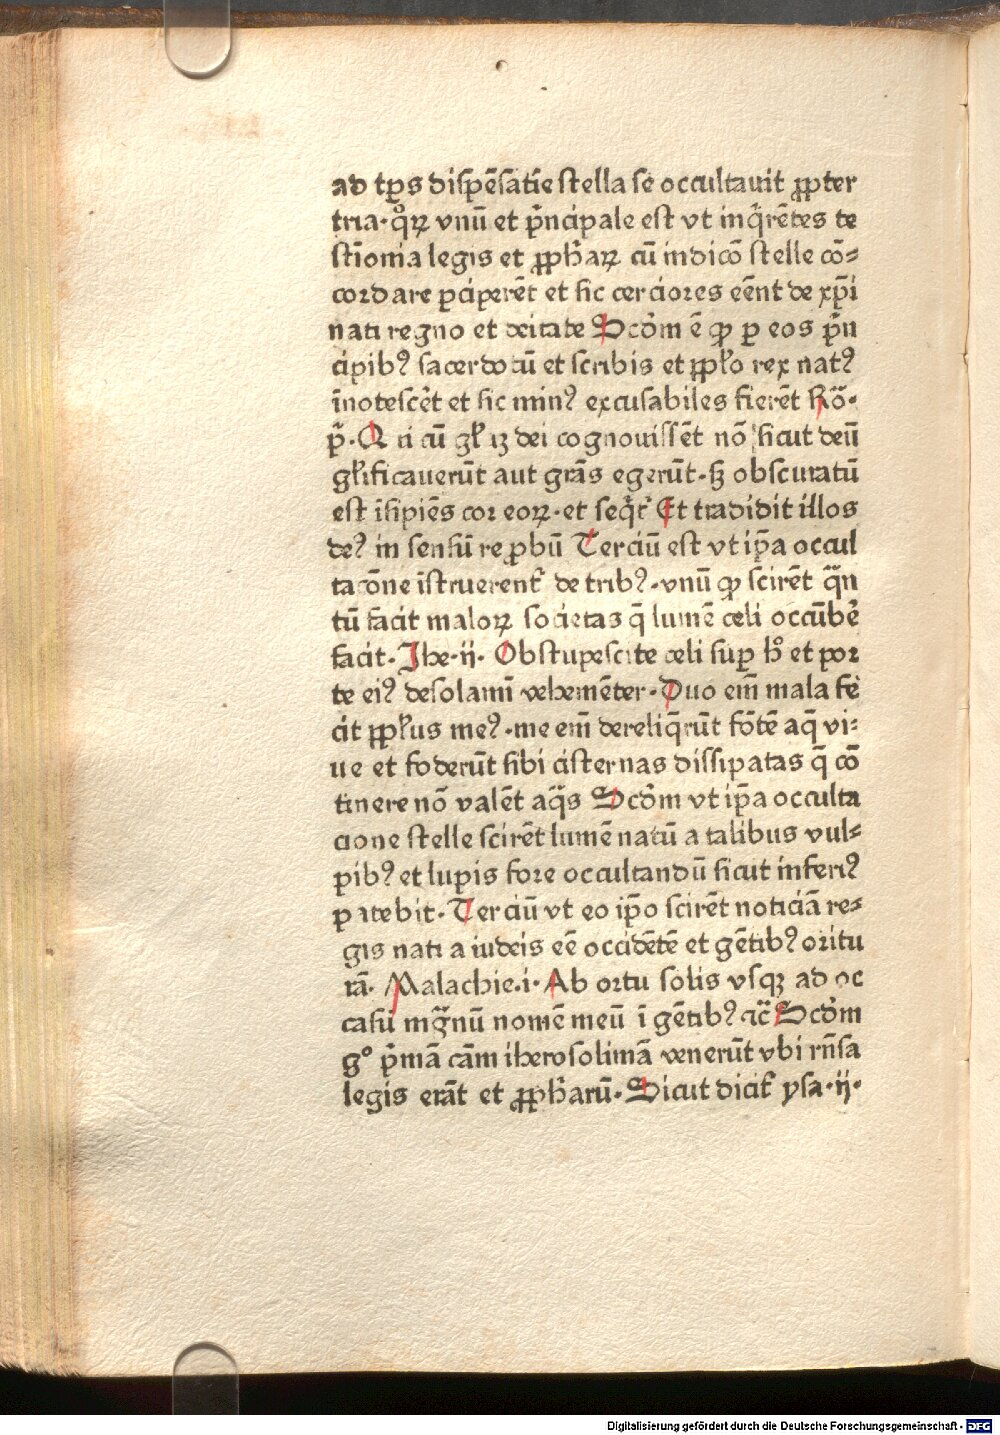 ad tꝑs dispēsatiē stella se occultauit ꝓpter
tria·qͦꝝ vnū et pͥncipale est vt inqͥrētes te
stīonia legis et ꝓphaꝝ cū indicō stelle cō⸗
cordare ꝑciperēt et sic cerciores eēnt de xp̄i
nati regno et deitate Scd̓m ē ꝙ ꝑ eos pͥn
cipibꝰ sacerdotū et scribis et ꝓplo rex natꝰ
īnotescēt et sic minꝰ excusabiles fierēt Rō·
pͥ·Q ti cū gl̓ iꝫ dei cognouissēt nō sicut deū
gl̓ificauerūt aut grās egerūt·sꝫ obscuratū
est īsipiēs cor eoꝝ·et seqͥt᷑ Et tradidit illos
deꝰ in sensū reꝓbū Terciū est vt ip̄a occul
tacōne īstruerent᷑ de tribꝰ·vnū ꝙ scirēt qᷓn
tū facit maloꝝ societas q̄ lumē celi occūbe̓
facit·Jhe·ii· Obstupescite celi suꝑ hͦ et por
te eiꝰ desolamī vehemēter·Duo em̄ mala fe
cit ꝓplus meꝰ·me em̄ dereliq̄rūt fōtē aq̄ vi⸗
ue et foderūt sibi cisternas dissipatas q̄ cō
tinere nō valēt aqᷓs Scd̓m vt ip̄a occulta
cione stelle scirēt lumē natū a talibus vul⸗
pibꝰ et lupis fore occultandū sicut inferiꝰ
patebit·Terciū vt eo ip̄o scirēt noticiā re⸗
gis nati a iudeis eē occidētē et gētibꝰ oritu
rā· Malachie·i·Ab ortu solis vsqꝫ ad oc
casū mgᷓnū nomē meū ī gētibꝰ ⁊c̄ Scd̓m
gͦ pͥmā cām iherosolimā venerūt vbi rn̄sa
legis erāt et ꝓpharū·Sicut dicit᷑ ysa·ii·
Digitalisierung gefördert durch die Deutsche Forschungsgemeinschaft - DFG